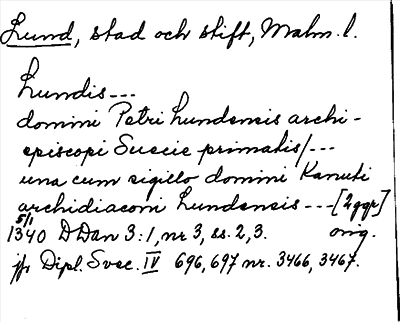 Lund, stad och stift, Malm. l.
Lundis ---
domini Petri Lundensis archi-
episcopi Suecie primatis/---
una cum sigillo domini Kanuti
archidiaconi Lundensis --- [2ggr]
5/1 orig.
1340 DDan 3:1, nr 3, ss. 2, 3.
jfr Dipl. Svec. IV 696, 697 nr. 3466, 3467.